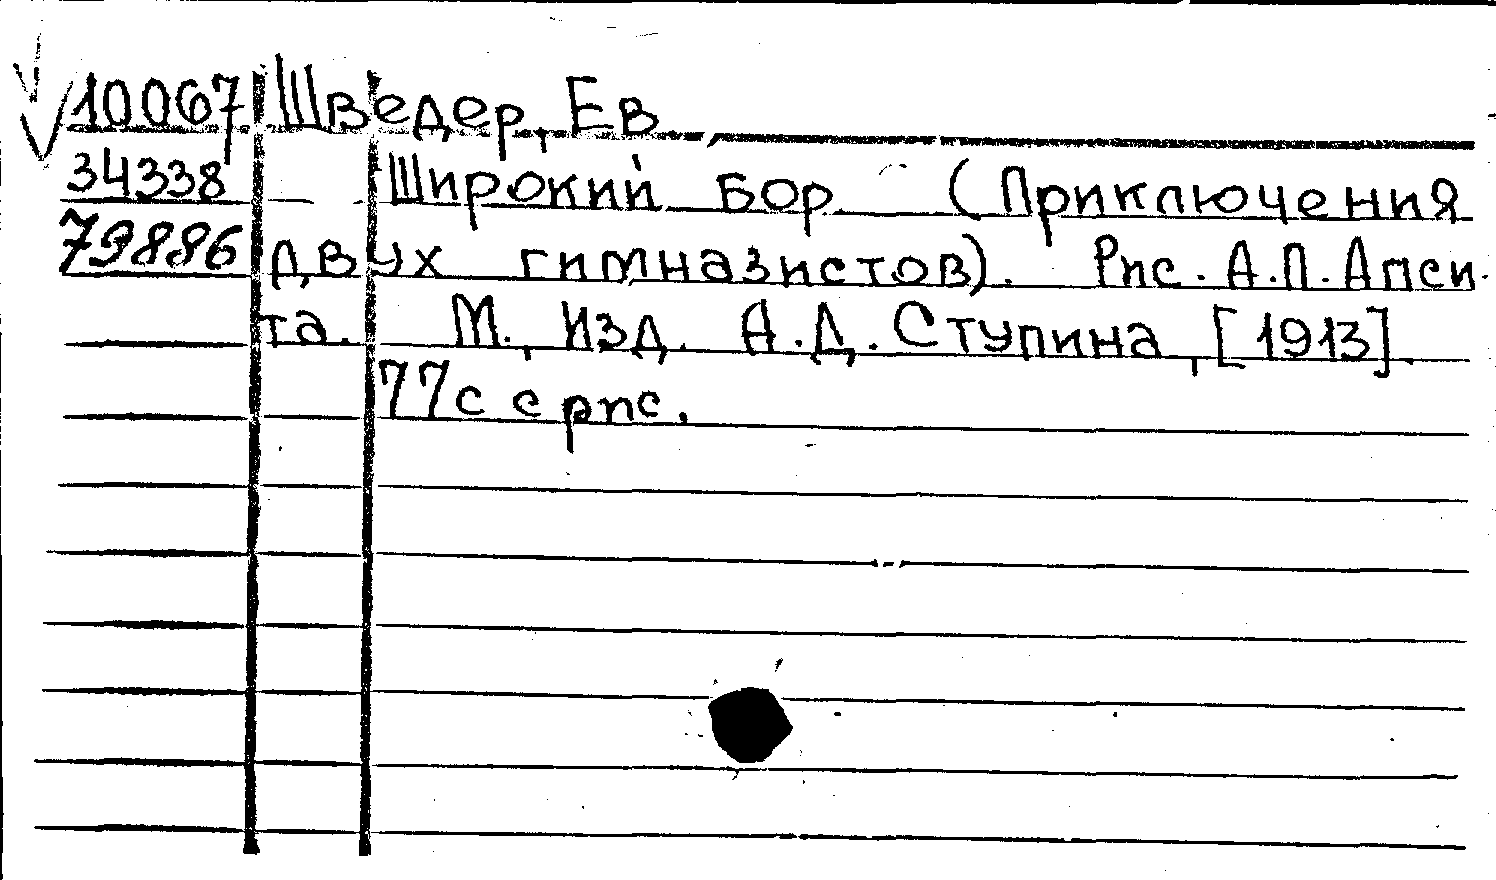 10067 Шведер, Ев
34338 Широкий бор (Приключения
79886 двух гимназистов). Рис. А.П. Апси-
та. М., Изд. А.Д. Ступина, [1913].
77с с рис.